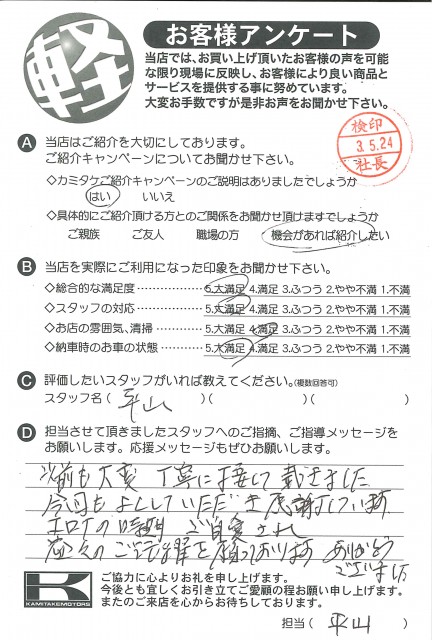 軽
お客様アンケート
当店では、お買い上げ頂いたお客様の声を可能
な限り現場に反映し、お客様により良い商品と
サービスを提供する事に努めています。
大変お手数ですが是非お声をお聞かせ下さい。
検印
3.5.24
社長
A 当店はご紹介を大切にしております。
ご紹介キャンペーンについてお聞かせ下さい。
◇カミタケご紹介キャンペーンのご説明はありましたでしょうか
はい いいえ
◇具体的にご紹介頂ける方とのご関係をお聞かせ頂けますでしょうか
ご親族 ご友人 職場の方 機会があれば紹介したい
B 当店を実際にご利用になった印象をお聞かせ下さい。
◇総合的な満足度 5.大満足 4.満足 3.ふつう 2.やや不満 1.不満
◇スタッフの対応 5.大満足 4.満足 3.ふつう 2.やや不満 1.不満
◇お店の雰囲気、清掃 5.大満足 4.満足 3.ふつう 2.やや不満 1.不満
◇納車時のお車の状態 5.大満足 4.満足 3.ふつう 2.やや不満 1.不満
C 評価したいスタッフがいれば教えてください。(複数回答可)
スタッフ名( 平山 )( )( )
D 担当させて頂きましたスタッフへのご指摘、ご指導メッセージを
お願いします。応援メッセージもぜひお願いします。
以前も大変丁寧に接して戴きました
今回もよくしていただき感謝しています
コロナの時期 ご自愛され
益々のご活躍を願っております ありがとう
ございました
K
KAMITAKEMOTORS
ご協力に心よりお礼を申し上げます。
今後とも宜しくお引き立てご愛顧の程お願い申し上げます。
またのご来店を心からお待ちしております。
担当( 平山 )